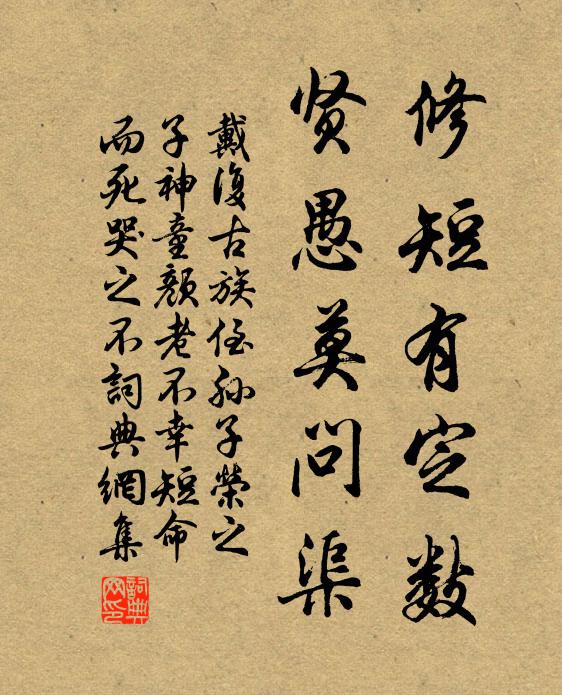 修短有定数
贤愚莫问渠
戴復古族侄孙子榮之
子神童顏老不幸短命
而死哭之不詞典網集
詞典
网印